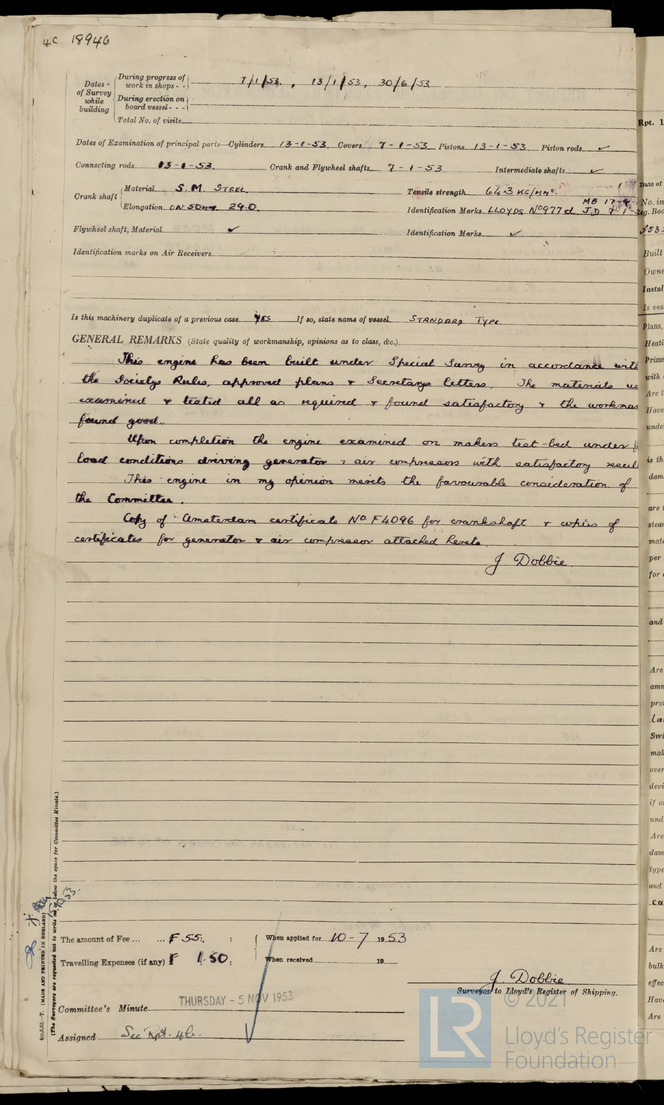 4c. 18946
Dates of Survey while building
During progress of work in shops - - 7/1/53, 13/1/53, 30/6/53
During erection on board vessel - - -
Total No. of visits
Dates of Examination of principal parts—Cylinders 13-1-53 Covers 7-1-53 Pistons 13-1-53 Piston rods ✓
Connecting rods 13-1-53 Crank and Flywheel shafts 7-1-53 Intermediate shafts ✓
Crank shaft Material S.M. STEEL Tensile strength 64.3 KG/MM²
Elongation ON 50mm 29.0 Identification Marks LLOYDS No 977d JD 7-1-
MB 17-9
Flywheel shaft, Material ✓ Identification Marks ✓
Identification marks on Air Receivers
Is this machinery duplicate of a previous case YES If so, state name of vessel STANDARD TYPE
GENERAL REMARKS (State quality of workmanship, opinions as to class, &c.)
This engine has been built under Special Survey in accordance with
the Societys Rules, approved plans & Secretarys letters. The materials
examined & tested all as required & found satisfactory & the workman
found good.
Upon completion the engine examined on makers test-bed under
load conditions driving generator & air compressors with satisfactory result
This engine in my opinion merits the favourable consideration of
the Committee.
Copy of Amsterdam certificate No F4096 for crankshaft & copies of
certificates for generator & air compressor attached hereto.
J Dobbie
The amount of Fee ... ... F 55 : : When applied for 10-7 1953
Travelling Expenses (if any) F 1.50 : When received 19
J. Dobbie
Surveyor to Lloyd's Register of Shipping.
Committee's Minute THURSDAY - 5 NOV 1953
Assigned See Rpt. 4b.
(MADE AND PRINTED IN ENGLAND)
(The Surveyors are requested not to write on or below the space for Committee Minute.)
© 2021
LR
Lloyd's Register
Foundation
Rpt. 1
Date of
No. in
Reg. Boo
Built
Owne
Instal
Is ves
Plans,
Heati
Prime
with
Are t
Have
unde
is th
dam
are
stea
mate
per
for
and
Are
amn
pro
La
Swi
mak
over
devi
if o
und
Are
dam
type
and
ca
Are
bulk
effec
Have
Are